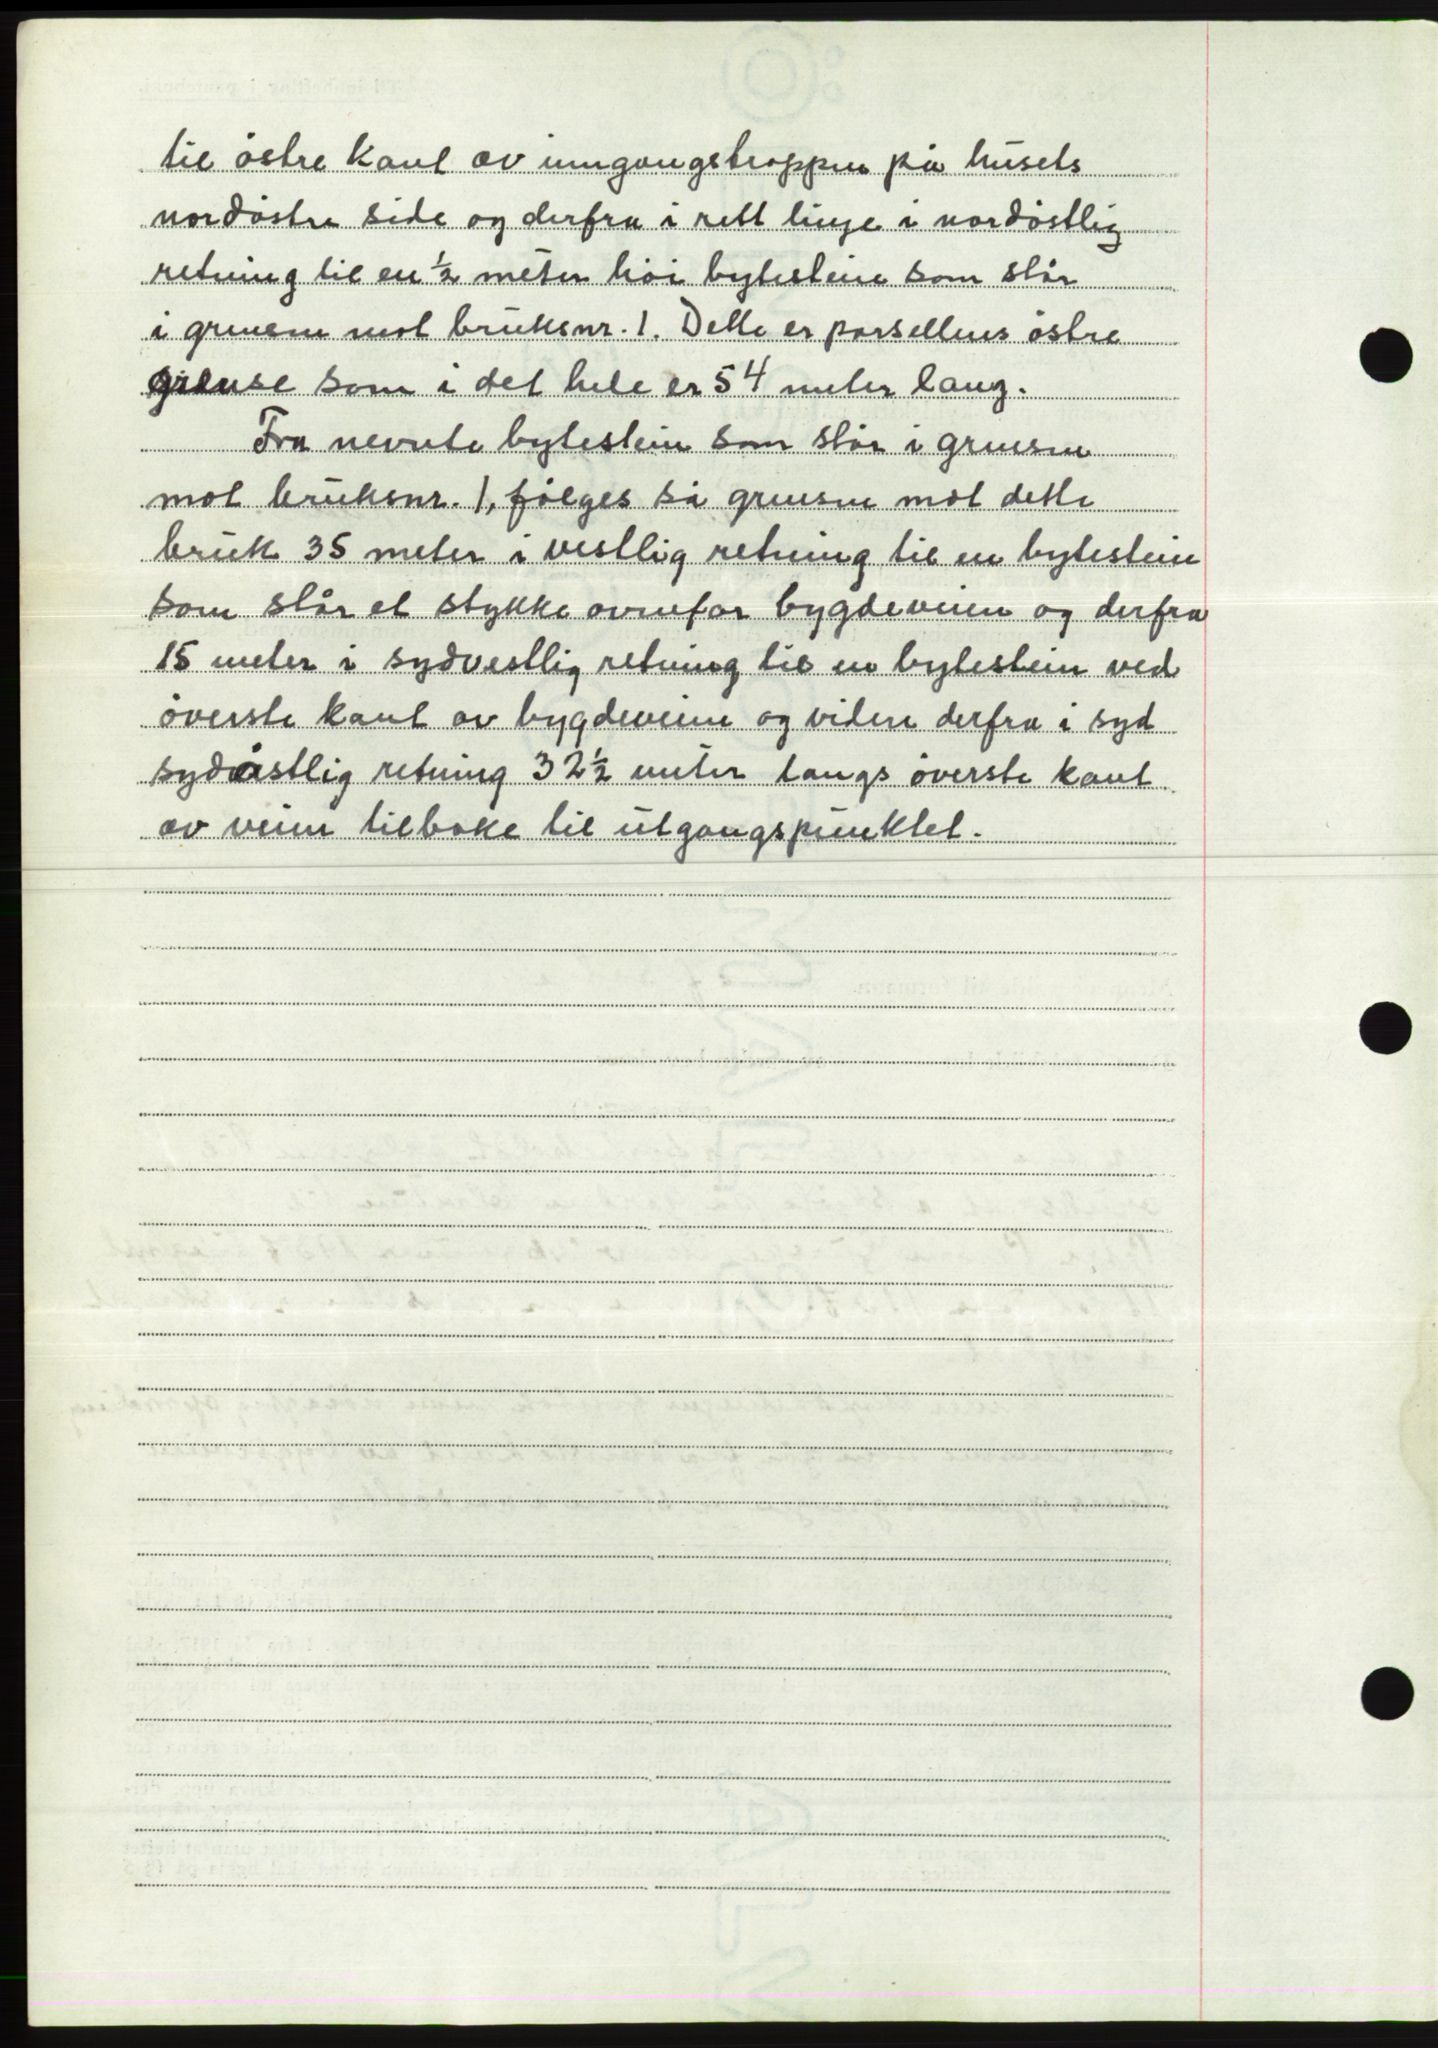 til østre kant av inngangstrappen på husets
nordøstre side og derfra i rett linje i nordøstlig
retning til en ½ meter høi bytestein som står
i grensen mot bruksnr. 1. Dette er parsellens østre
grense som i det hele er 54 meter lang.
Fra nevnte bytestein som står i grensen
mot bruksnr. 1, følges så grensen mot dette
bruk 35 meter i vestlig retning til en bytestein
som står et stykke ovenfor bygdeveien og derfra
15 meter i sydvestlig retning til en bytestein ved
øverste kant av bygdeveien og videre derfra i syd
sydøstlig retning 32½ meter langs øverste kant
av veien tilbake til utgangspunktet.